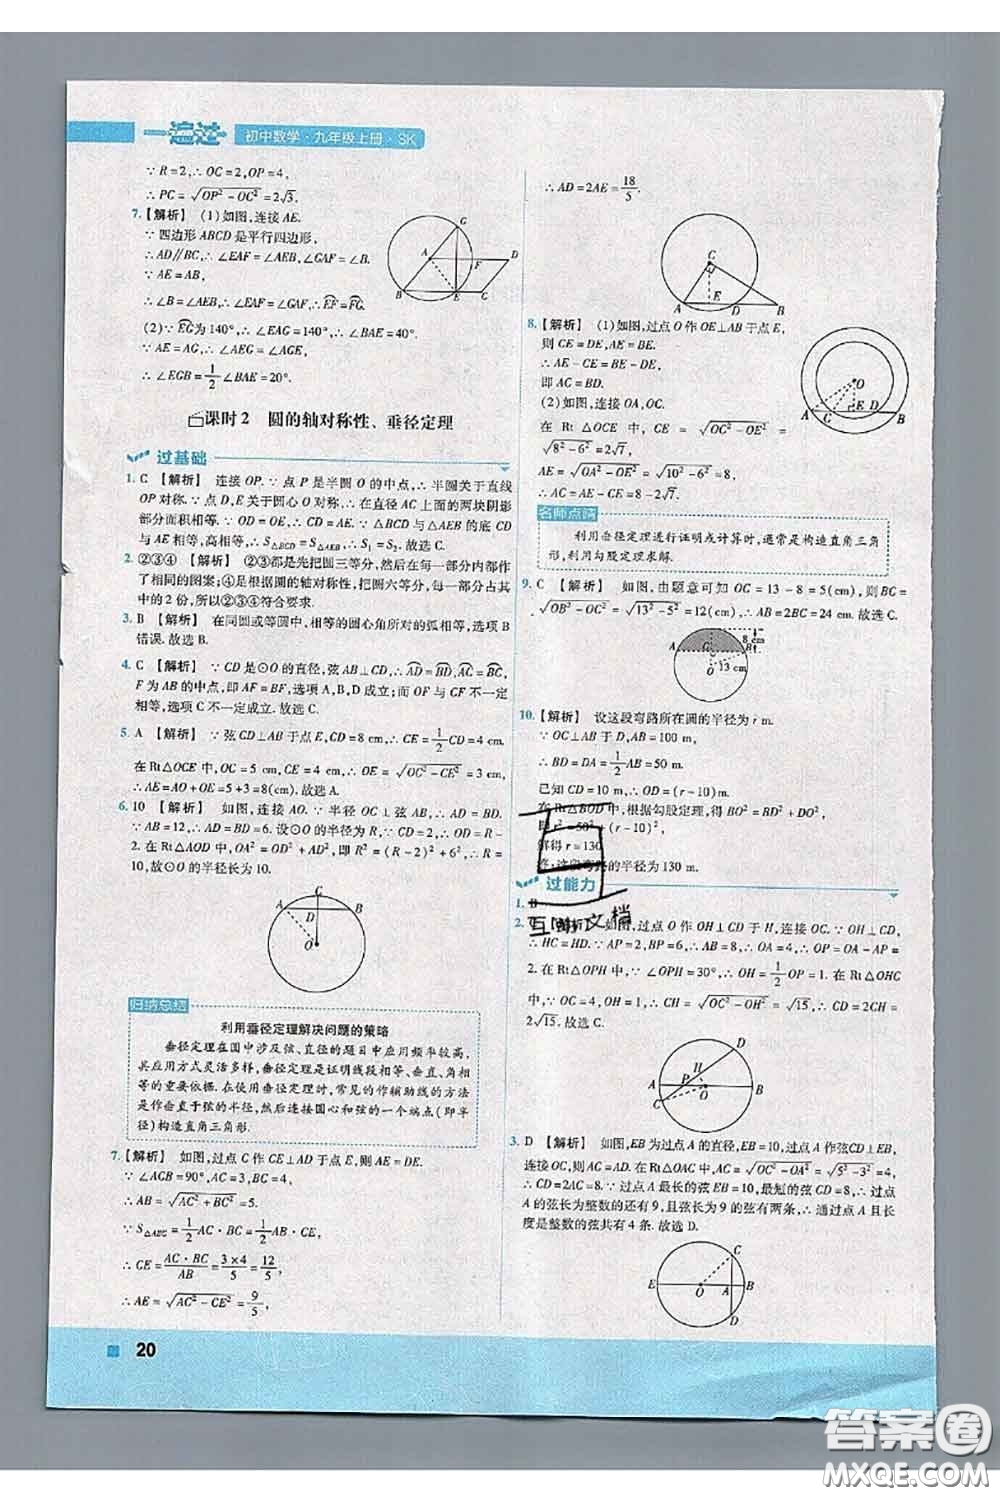 一遍过 初中数学·九年级上册·SK
∵R=2,∴OC=2,OP=4,
∴PC=√(OP²-OC²)=2√3.
7.【解析】 (1)如图,连接AE.
∵四边形ABCD是平行四边形,
∴AD∥BC,∴∠EAF=∠AEB,∠GAF=∠B.
∵AE=AB,
∴∠B=∠AEB,∴∠EAF=∠GAF,∴EF=FG.
(2)∵EG为140°,∴∠EAG=140°,∴∠BAE=40°.
∵AE=AG,∴∠AEG=∠AGE,
∴∠EGB=1/2∠BAE=20°.
G
A
F
D
B
E
C
课时2 圆的轴对称性、垂径定理
过基础
1. C 【解析】 连接OP.∵点P是半圆O的中点,∴半圆关于直线
OP对称.∵点D,E关于圆心O对称,∴在直径AC上面的两块阴影
部分面积相等.∵OD=OE,∴CD=AE.∵△BCD与△AEB的底CD
与AE相等,高相等,∴S△BCD=S△AEB,∴S₁=S₂.故选C.
2. ②③④ 【解析】 ②③都是先把圆三等分,然后在每一部分内都作
了相同的图案;④是根据圆的轴对称性,把圆六等分,每一等分占其
中的2份,所以②③④符合要求.
3. B 【解析】 在同圆或等圆中,相等的圆心角所对的弧相等,选项B
错误.故选B.
4. C 【解析】 ∵CD是⊙O的直径,弦AB⊥CD,∴AD=BD,AC=BC,
F为AB的中点,即AF=BF,选项A,B,D成立;而OF与CF不一定
相等,选项C不一定成立.故选C.
5. A 【解析】 ∵弦CD⊥AB于点E,CD=8 cm,∴CE=1/2CD=4 cm.
在Rt△OCE中,OC=5 cm,CE=4 cm,∴OE=√(OC²-CE²)=3 cm,
∴AE=AO+OE=5+3=8(cm).故选A.
6. 10 【解析】 如图,连接AO.∵半径OC⊥弦AB,∴AD=BD.
∵AB=12,∴AD=BD=6.设⊙O的半径为R,∵CD=2,∴OD=R-
2.在Rt△AOD中,OA²=OD²+AD²,即R²=(R-2)²+6²,∴R=
10,故⊙O的半径长为10.
C
A
D
B
O
归纳总结
利用垂径定理解决问题的策略
垂径定理在圆中涉及弦、直径的题目中应用频率较高,
其应用方式灵活多样,垂径定理是证明线段相等、垂直、角相
等的重要依据.在使用垂径定理时,常见的作辅助线的方法
是作垂直于弦的半径,然后连接圆心和弦的一个端点(即半
径)构造直角三角形.
7.【解析】 如图,过点C作CE⊥AD于点E,则AE=DE.
∵∠ACB=90°,AC=3,BC=4,
∴AB=√(AC²+BC²)=5.
∵S△ABC=1/2AC·BC=1/2AB·CE,
∴CE=AC·BC/AB=3×4/5=12/5,
∴AE=√(AC²-CE²)=9/5,
∴AD=2AE=18/5.
C
A
E
D
B
8.【解析】 (1)如图,过点O作OE⊥AB于点E,
则CE=DE,AE=BE.
∴AE-CE=BE-DE,
即AC=BD.
(2)如图,连接OA,OC.
在Rt△OCE中,CE=√(OC²-OE²)=
√(8²-6²)=2√7,
AE=√(OA²-OE²)=√(10²-6²)=8,
∴AC=AE-CE=8-2√7.
O
A
C
E
D
B
名师点睛
利用垂径定理进行证明或计算时,通常是构造直角三角
形,利用勾股定理求解.
9. C 【解析】 如图,由题意可知OC=13-8=5(cm),则BC=
√(OB²-OC²)=√(13²-5²)=12(cm),∴AB=2BC=24 cm.故选C.
A
C
B
8 cm
13 cm
O
10.【解析】 设这段弯路所在圆的半径为r m.
∵OC⊥AB于D,AB=100 m,
∴BD=DA=1/2AB=50 m.
已知CD=10 m,∴OD=(r-10)m.
在Rt△BOD中,根据勾股定理,得BO²=BD²+DO²,
即r²=50²+(r-10)²,
解得r=130.
答:这段弯路的半径为130 m.
过能力
1. B
2. C 【解析】 如图,过点O作OH⊥CD于H,连接OC.∵OH⊥CD,
∴HC=HD.∵AP=2,BP=6,∴AB=8,∴OA=4,∴OP=OA-AP=
2.在Rt△OPH中,∵∠OPH=∠APC=30°,∴OH=1/2OP=1.
在Rt△OHC中,∵OC=4,OH=1,∴CH=√(OC²-OH²)=√15,∴CD=2CH=
2√15.故选C.
互动文档
D
H
A
P
O
B
C
3. D 【解析】 如图,EB为过点A的直径,EB=10,过点A作弦CD⊥EB,
连接OC,则OC=5,OA=3.在Rt△OAC中,AC=√(OC²-OA²)=√(5²-3²)=4,
∴CD=2AC=8.∵过点A最长的弦EB=10,最短的弦CD=8,∴过点A
的弦长为整数的还有9,且弦长为9的弦有两条,∴通过点A且弦长
度是整数的弦共有4条.故选D.
C
E
O
A
B
D
20
答案圈
MXQE.COM